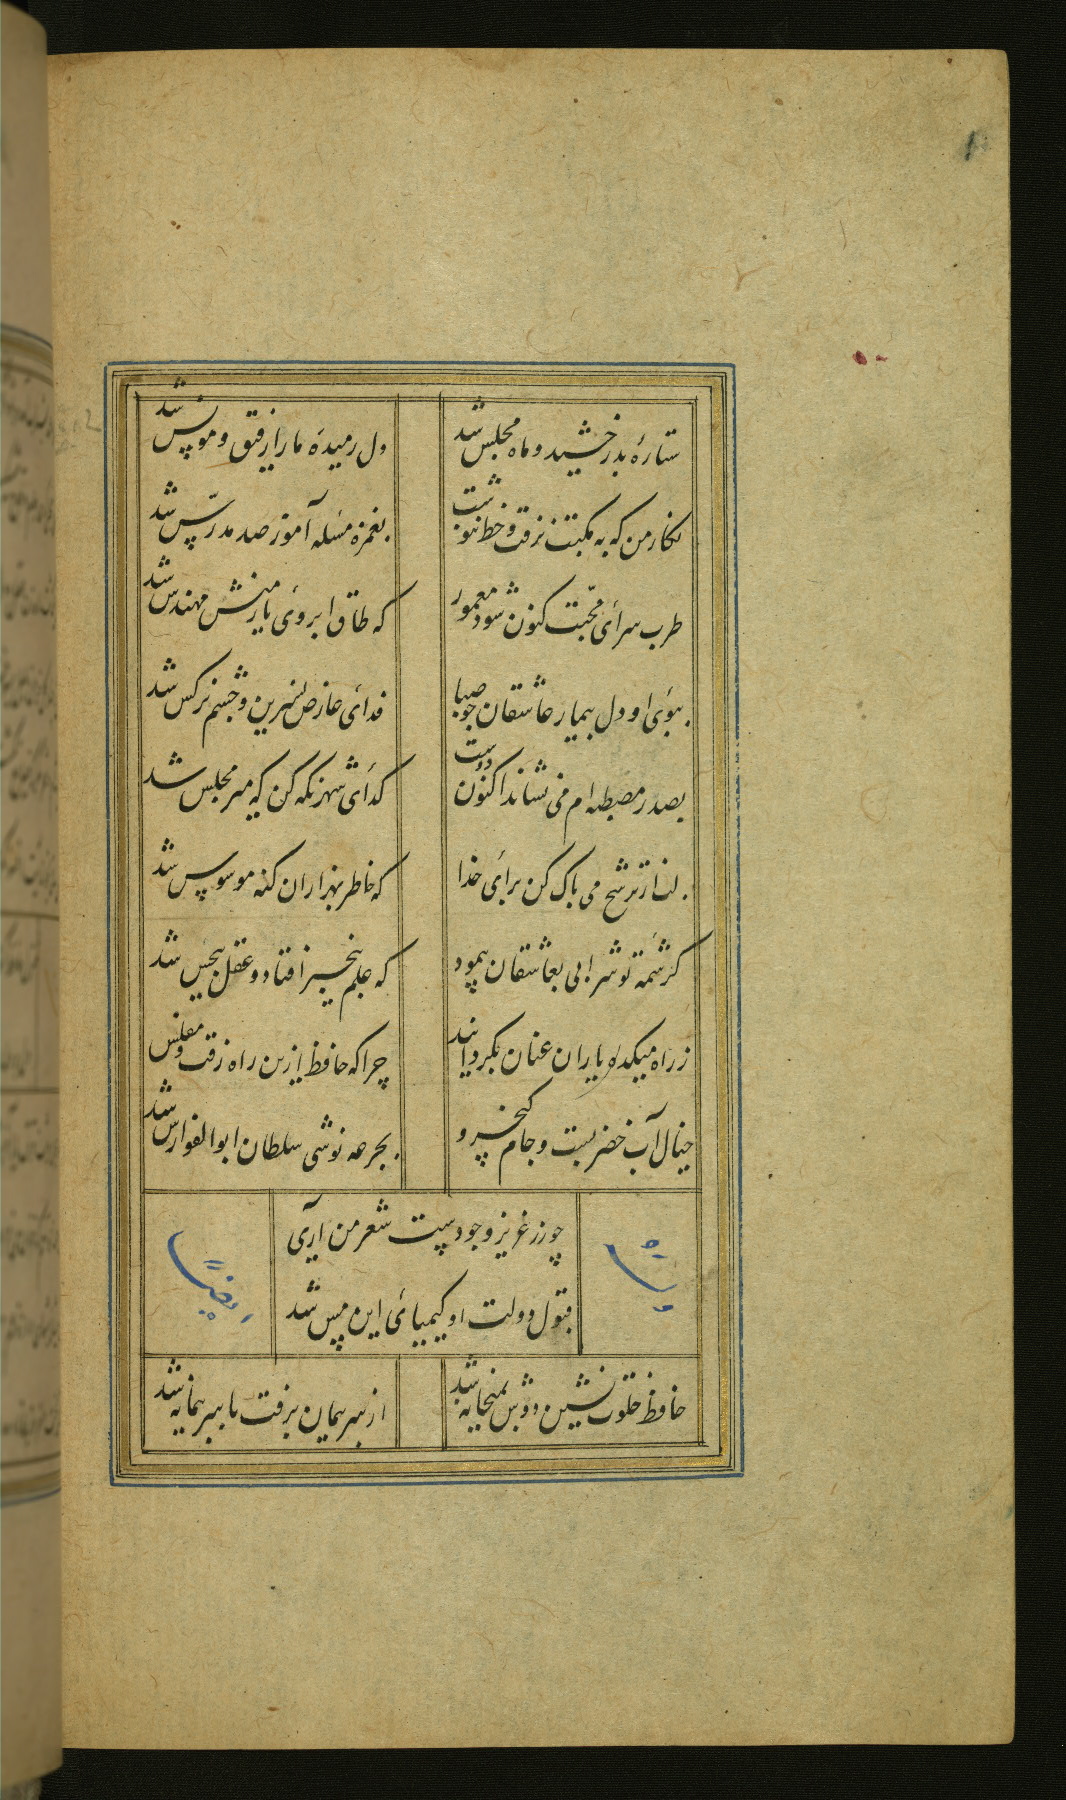 ستارهٔ بدرخشید و ماه مجلس شد
دل رمیدهٔ ما را رفیق و مونس شد
نکار من که به مکتب نرفت و خط ننوشت
بغمزه مسئله آموز صد مدرّس شد
طرب سرای محبّت کنون شود معمور
که طاق ابروی یار منش مهندس شد
ببوی او دل بیمار عاشقان چو صبا
فدای عارض نسرین و چشم نرکس شد
بصدر مصطبه ام می نشاند اکنون دوست
کدای شهر نکه کن که میر مجلس شد
لب از ترشح می پاک کن برای خدا
که خاطر بهزاران کنه موسوس شد
کرشمهٔ تو شرابی بعاشقان پیمود
که علم بیخبر افتاد و عقل بیحس شد
ز راه میکده یاران عنان بکردانید
چرا که حافظ ازین راه رفت و مفلس شد
خیال آب خضر بست و جام کیخسرو
بجرعه نوشی سلطان ابوالفوارس شد
چو زر عزیز وجودست شعر من آری
قبول دولت او کیمیای این مس شد
وله
ایضاً
حافظ خلوت نشین دوش بمیخانه شد
از سر پیمان برفت با سر پیمانه شد